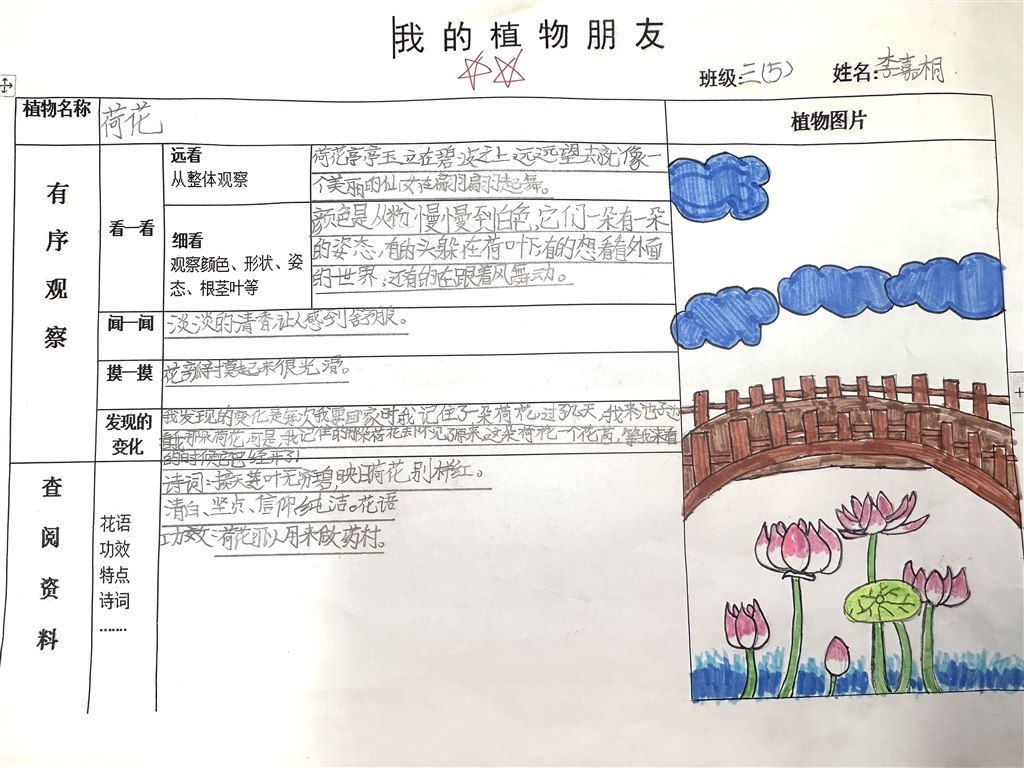 我的植物朋友
班级:三(5) 姓名:李嘉桐
植物名称
荷花
植物图片
有序观察
看一看
远看
从整体观察
荷花亭亭玉立在碧波之上,远远望去就像一
个美丽的仙女在翩翩起舞。
细看
观察颜色、形状、姿
态、根茎叶等
颜色是从粉慢慢到白色,它们一朵有一朵
的姿态,有的头躲在荷叶下,有的想看看外面
的世界,还有的在跟着风舞动。
闻一闻
淡淡的清香让人感到舒服。
摸一摸
花瓣摸起来很光滑。
发现的
变化
我发现的变化是每次我要回家时我记住了一朵荷花,过了几天,我来池子边
那朵荷花,可是,我记住的那朵荷花去哪儿了原来这朵荷花一个花苞,等我来看
的时候它已经开了!
查阅资料
花语
功效
特点
诗词
……
诗词:接天莲叶无穷碧,映日荷花别样红。
清白、坚贞、信仰、纯洁。花语
功效:荷花可以用来做药材。